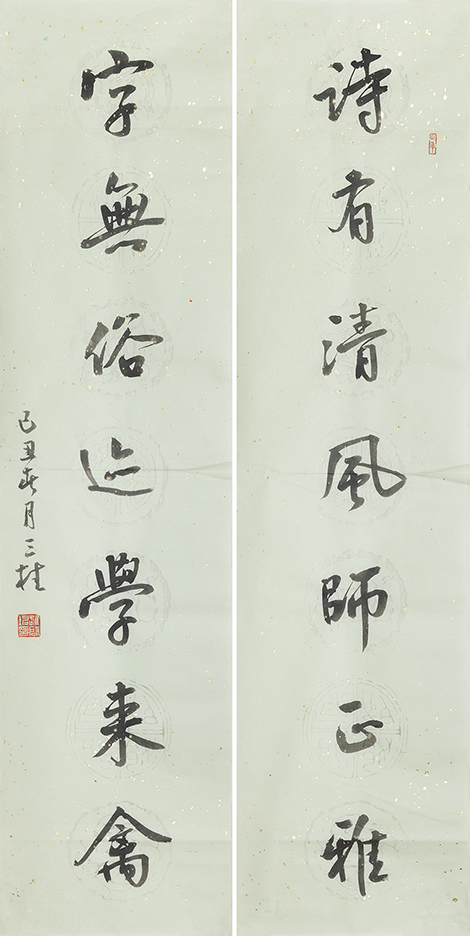 詩有清風師正雅
字無俗迹學来禽
己丑春月三桂